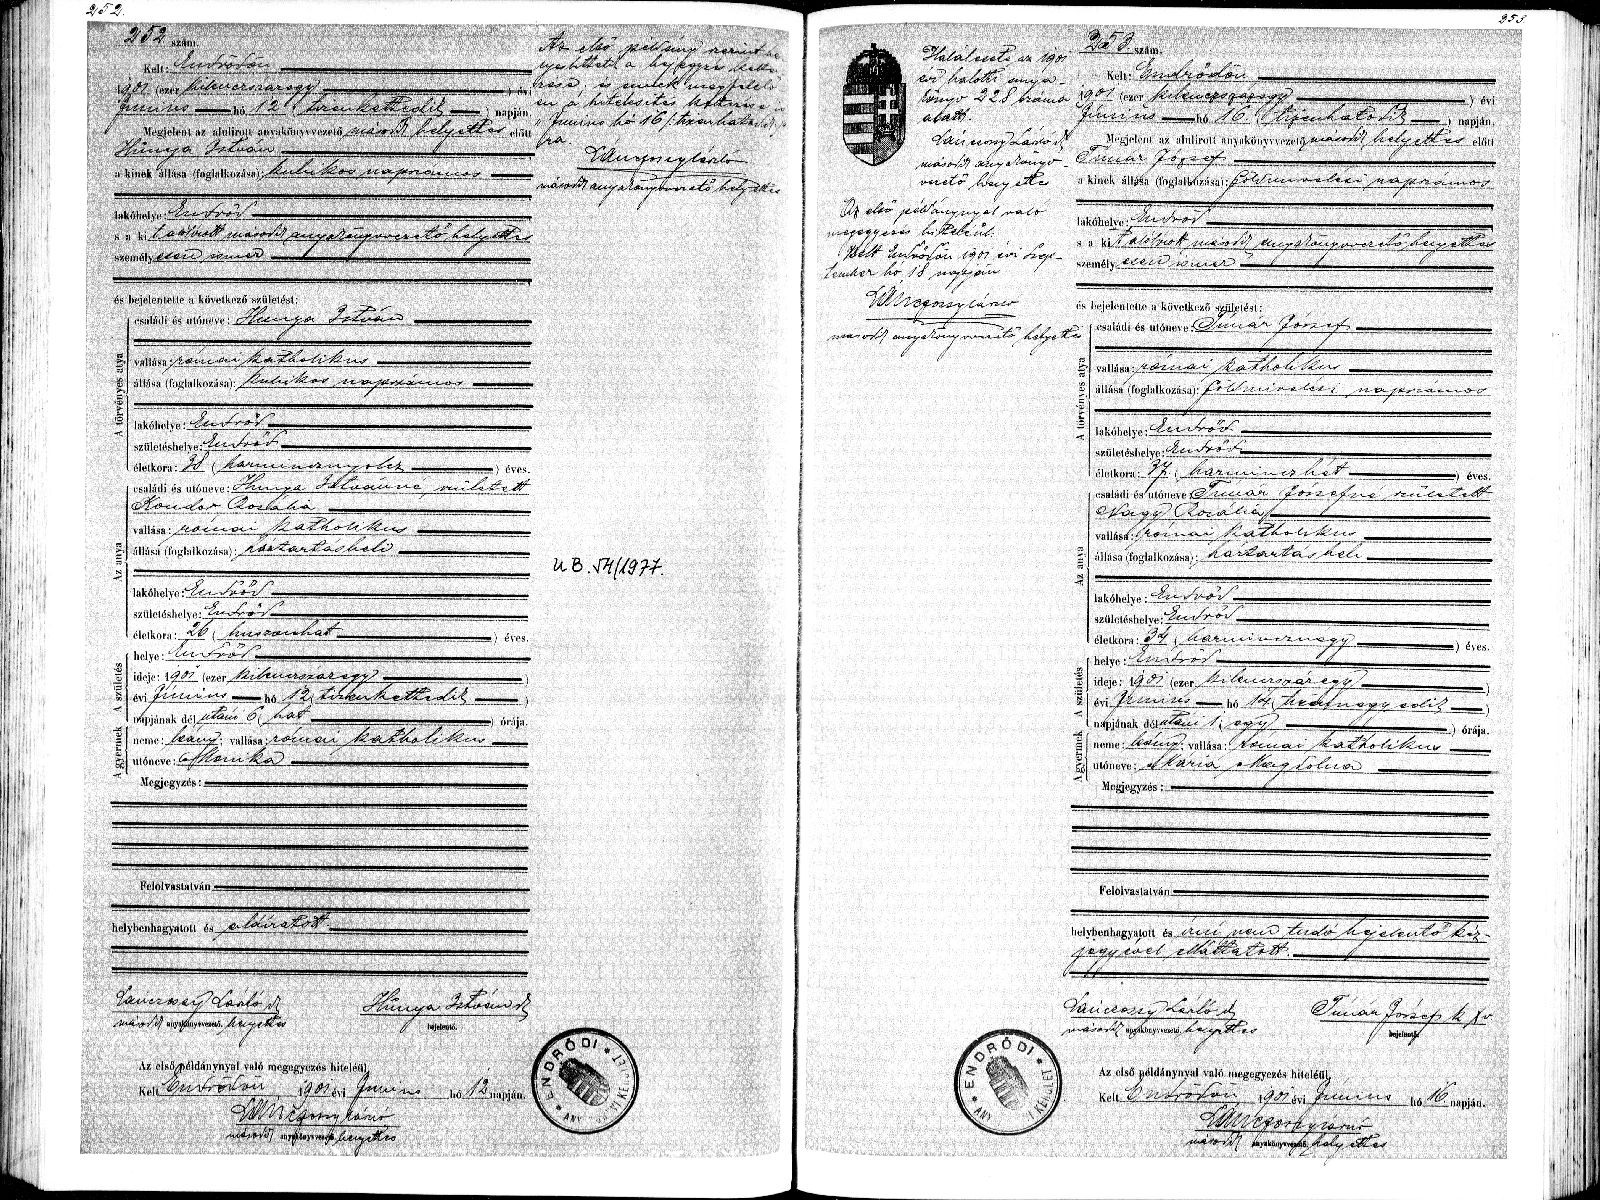 252.
252 szám.
Kelt: Endrődön
1901 (ezer kilenczszázegy) évi
Június hó 12 (tizenkettedik) napján.
Megjelent az alulirott anyakönyvvezető második helyettes előtt
Hunya István
a kinek állása (foglalkozása): kubikos napszámos
lakóhelye: Endrőd
s a ki t alólirott második anyakönyvvezető helyettes
személyesen ismer
és bejelentette a következő születést:
A törvényes atya
családi és utóneve: Hunya István
vallása: római katholikus
állása (foglalkozása): kubikos napszámos
lakóhelye: Endrőd
születéshelye: Endrőd
életkora: 38 (harmincznyolcz) éves.
Az anya
családi és utóneve: Hunya Istvánné, született
Kondor Rozália
vallása: római katholikus
állása (foglalkozása): háztartásbeli
lakóhelye: Endrőd
születéshelye: Endrőd
életkora: 26 (huszonhat) éves.
A születés
helye: Endrőd
ideje: 1901 (ezer kilenczszázegy)
évi Június hó 12 (tizenkettedik)
napjának dél utáni 6 (hat) órája.
A gyermek
neme: leány; vallása: római katholikus
utóneve: Monika
Megjegyzés:
Felolvastatván
helybenhagyatott és aláiratott.
Lánczossy László
második anyakönyvvezető helyettes
Hunya István
bejelentő.
Az első példánynyal való megegyezés hiteléül.
Kelt Endrődön 1901 évi Június hó 12 napján.
Lánczossy László
második anyakönyvvezető helyettes
Az első példány szerint
s Június hó 16 (tizenhatodik)
ra.
Lánczossy László
második anyakönyvvezető helyettes
U B. 54/1977.
ENDRŐDI
253
253 szám.
Kelt: Endrődön
1901 (ezer kilenczszázegy) évi
Június hó 16 (tizenhatodik) napján.
Megjelent az alulirott anyakönyvvezető második helyettes előtt
Timár József
a kinek állása (foglalkozása): földmivelési napszámos
lakóhelye: Endrőd
s a ki t alólirott második anyakönyvvezető helyettes
személyesen ismer
és bejelentette a következő születést:
A törvényes atya
családi és utóneve: Timár József
vallása: római katholikus
állása (foglalkozása): földmivelési napszámos
lakóhelye: Endrőd
születéshelye: Endrőd
életkora: 37 (harminczhét) éves.
Az anya
családi és utóneve: Timár Józsefné született
Nagy Rozália
vallása: római katholikus
állása (foglalkozása): háztartásbeli
lakóhelye: Endrőd
születéshelye: Endrőd
életkora: 34 (harmincznégy) éves.
A születés
helye: Endrőd
ideje: 1901 (ezer kilenczszázegy)
évi Június hó 14 (tizennegyedik)
napjának dél utáni 1 (egy) órája.
A gyermek
neme: leány; vallása: római katholikus
utóneve: Mária Magdolna
Megjegyzés:
Felolvastatván
helybenhagyatott és irni nem tudó bejelentő kéz-
jegyével elláttatott.
Lánczossy László
második anyakönyvvezető helyettes
Timár József k X v
bejelentő.
Az első példánynyal való megegyezés hiteléül.
Kelt Endrődön 1901 évi Június hó 16 napján.
Lánczossy László
második anyakönyvvezető helyettes
Halálesete az 1901
évi halotti anya-
könyv 228 száma
alatt.
Lánczossy László
második anyakönyv
vezető helyettes
Az első példánynyal való
megegyezés hiteléül.
Kelt Endrődön 1901 évi Szep-
tember hó 18 napján
Lánczossy László
második anyakönyvvezető helyettes
ENDRŐDI